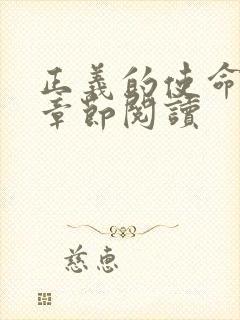 正義的使命
章節閱讀
慈惠